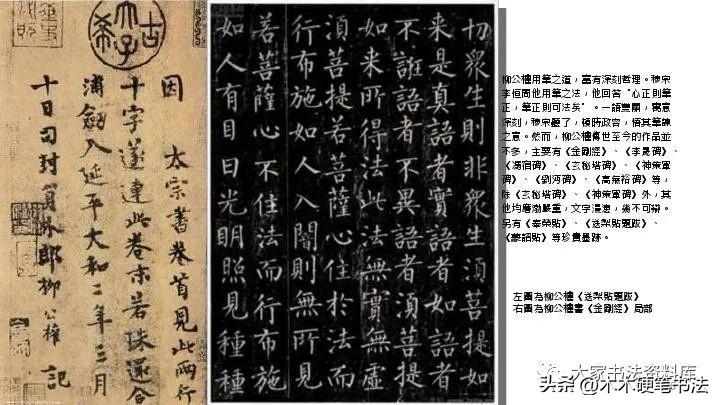 古希天子
因 太宗書卷首見此兩行
十字遂連此卷末若珠還合
浦劒入延平大和二年三月
十日司封員外郎柳公權 記
切眾生則非眾生須菩提如
來是真語者實語者如語者
不誑語者不異語者須菩提
如來所得法此法無實無虛
須菩提若菩薩心住於法而
行布施如人入闇則無所見
若菩薩心不住法而行布施
如人有目日光明照見種種
柳公權用筆之道，富有深刻哲理。穆宗
李恒問他用筆之法，他回答“心正則筆
正，筆正則可法矣”。一語雙關，寓意
深刻，穆宗聽了，頓時改容，悟其筆諫
之意。然而，柳公權傳世至今的作品並
不多，主要有《金剛經》、《李晟碑》、
《馮宿碑》、《玄秘塔碑》、《神策軍
碑》、《劉沔碑》、《高無裕碑》等，
除《玄秘塔碑》、《神策軍碑》外，其
他均磨泐嚴重，文字漫漶，幾不可辯。
另有《泰榮貼》、《送梨貼題跋》、
《蒙詔貼》等珍貴墨跡。
左圖為柳公權《送梨貼題跋》
右圖為柳公權書《金剛經》局部
大家书法资料库
头条 @木木硬笔书法